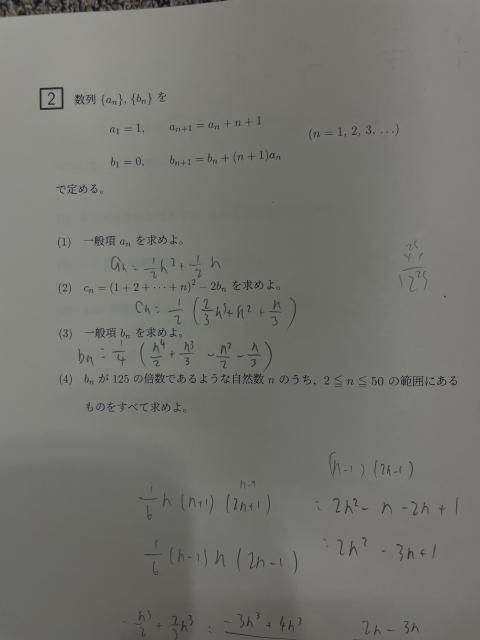 2 数列 {aₙ}, {bₙ} を
a₁ = 1, aₙ₊₁ = aₙ + n + 1
(n = 1, 2, 3, …)
b₁ = 0, bₙ₊₁ = bₙ + (n + 1)aₙ
で定める。
(1) 一般項 aₙ を求めよ。
aₙ = 1/2 n² + 1/2 n
(2) cₙ = (1 + 2 + ⋯ + n)² − 2bₙ を求めよ。
cₙ = 1/2 (2/3 n³ + n² + n/3)
(3) 一般項 bₙ を求めよ。
bₙ = 1/4 (n⁴/2 + n³/3 − n²/2 − n/3)
(4) bₙ が 125 の倍数であるような自然数 n のうち、2 ≦ n ≦ 50 の範囲にある
ものをすべて求めよ。
(n−1) (2n−1)
1/6 n (n+1) (2n+1)
: 2n² − n − 2n + 1
1/6 (n−1) n (2n−1)
: 2n² − 3n + 1
n³/2 + 2/3 n³ : −3n³ + 4n³
2n − 3n